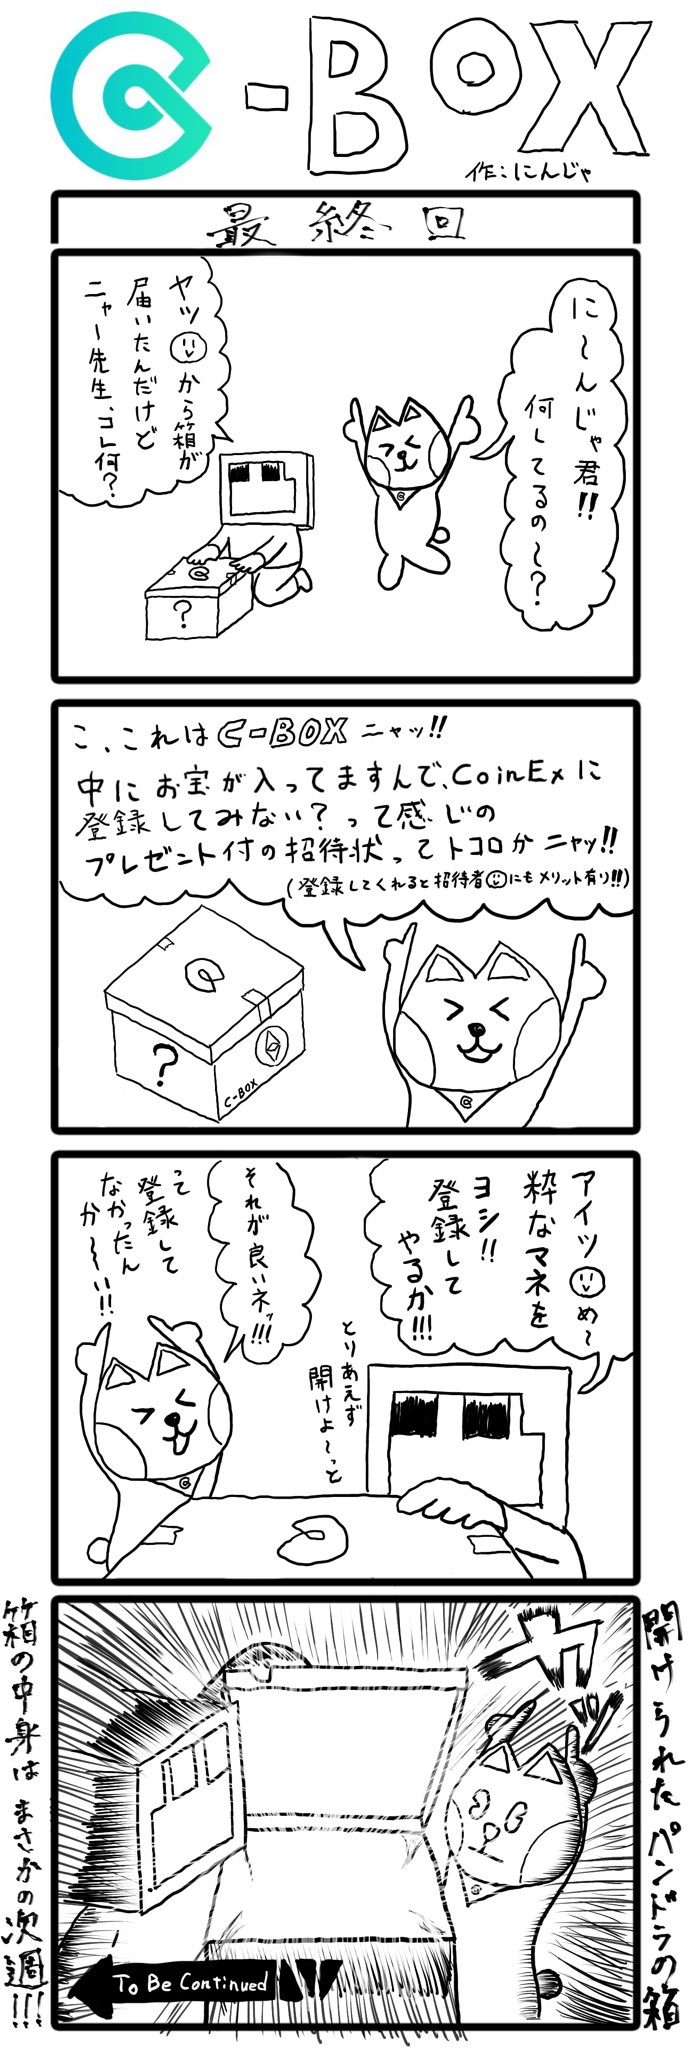 C-BOX
作:にんじゃ
最終回
に〜んじゃ君!!
何してるの〜?
ヤツ から箱が
届いたんだけど
ニャー先生、コレ何?
?
こ、これはC-BOXニャッ!!
中にお宝が入ってますんで、CoinExに
登録してみない?って感じの
プレゼント付の招待状ってトコロかニャッ!!
(登録してくれると招待者 にもメリット有り!!)
?
C-BOX
アイツ め〜
粋なマネを
ヨシ!!
登録して
やるか!!!
とりあえず
開けよ〜っと
それが良いネッ!!!
って
登録して
なかったん
か〜〜い!!
開けられたパンドラの箱
カッ
To Be Continued
箱の中身はまさかの次週!!!